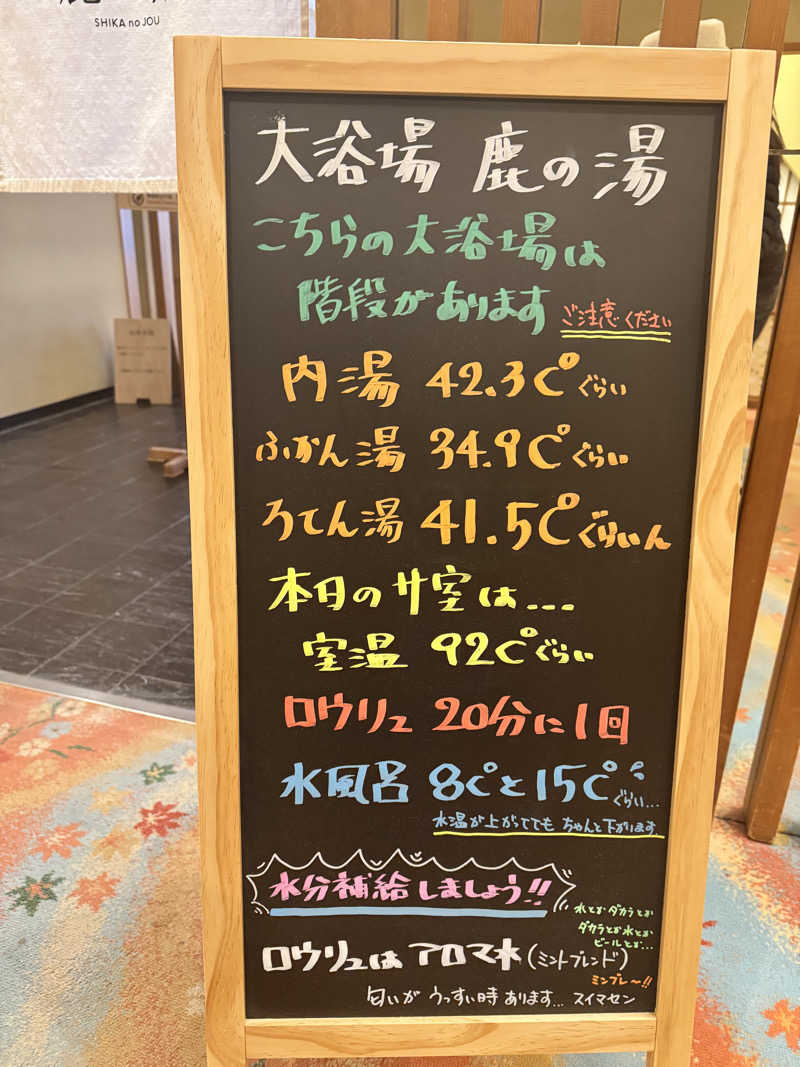 SHIKA no JOU
大浴場 鹿の湯
こちらの大浴場は
階段があります ご注意ください
内湯 42.3C°ぐらい
ふかん湯 34.9C°ぐらい
ろてん湯 41.5C°ぐらいん
本日のサ室は...
室温 92C°ぐらい
ロウリュ 20分に1回
水風呂 8C°と15C°ぐらい...
水温が上がってても ちゃんと下がります
水分補給しましょう!!
水とかダカラとか
ダカラとか水とか
ビールとか...
ロウリュはアロマ水(ミントブレンド)
ミンブレ〜!!
匂いが うっすい時 あります... スイマセン